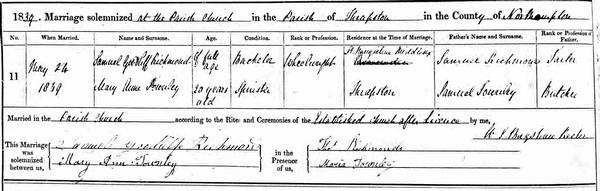 1839. Marriage solemnized at the Parish Church in the Parish of Thrapston in the County of Northampton
No. When Married. Name and Surname. Age. Condition. Rank or Profession. Residence at the Time of Marriage. Father's Name and Surname. Rank or Profession of Father.
11 May 24 Samuel Richmond Of full age Bachelor Middlesex Samuel Richmond
1839 Mary Anne Townley 20 years old Spinster Thrapston Samuel Townley Butcher
Married in the Parish Church according to the Rites and Ceremonies of the Established Church after Licence by me,
This Marriage was solemnized between us, Samuel Richmond in the Presence of us, Thos Richmond
Mary Ann Townley Maria Townley